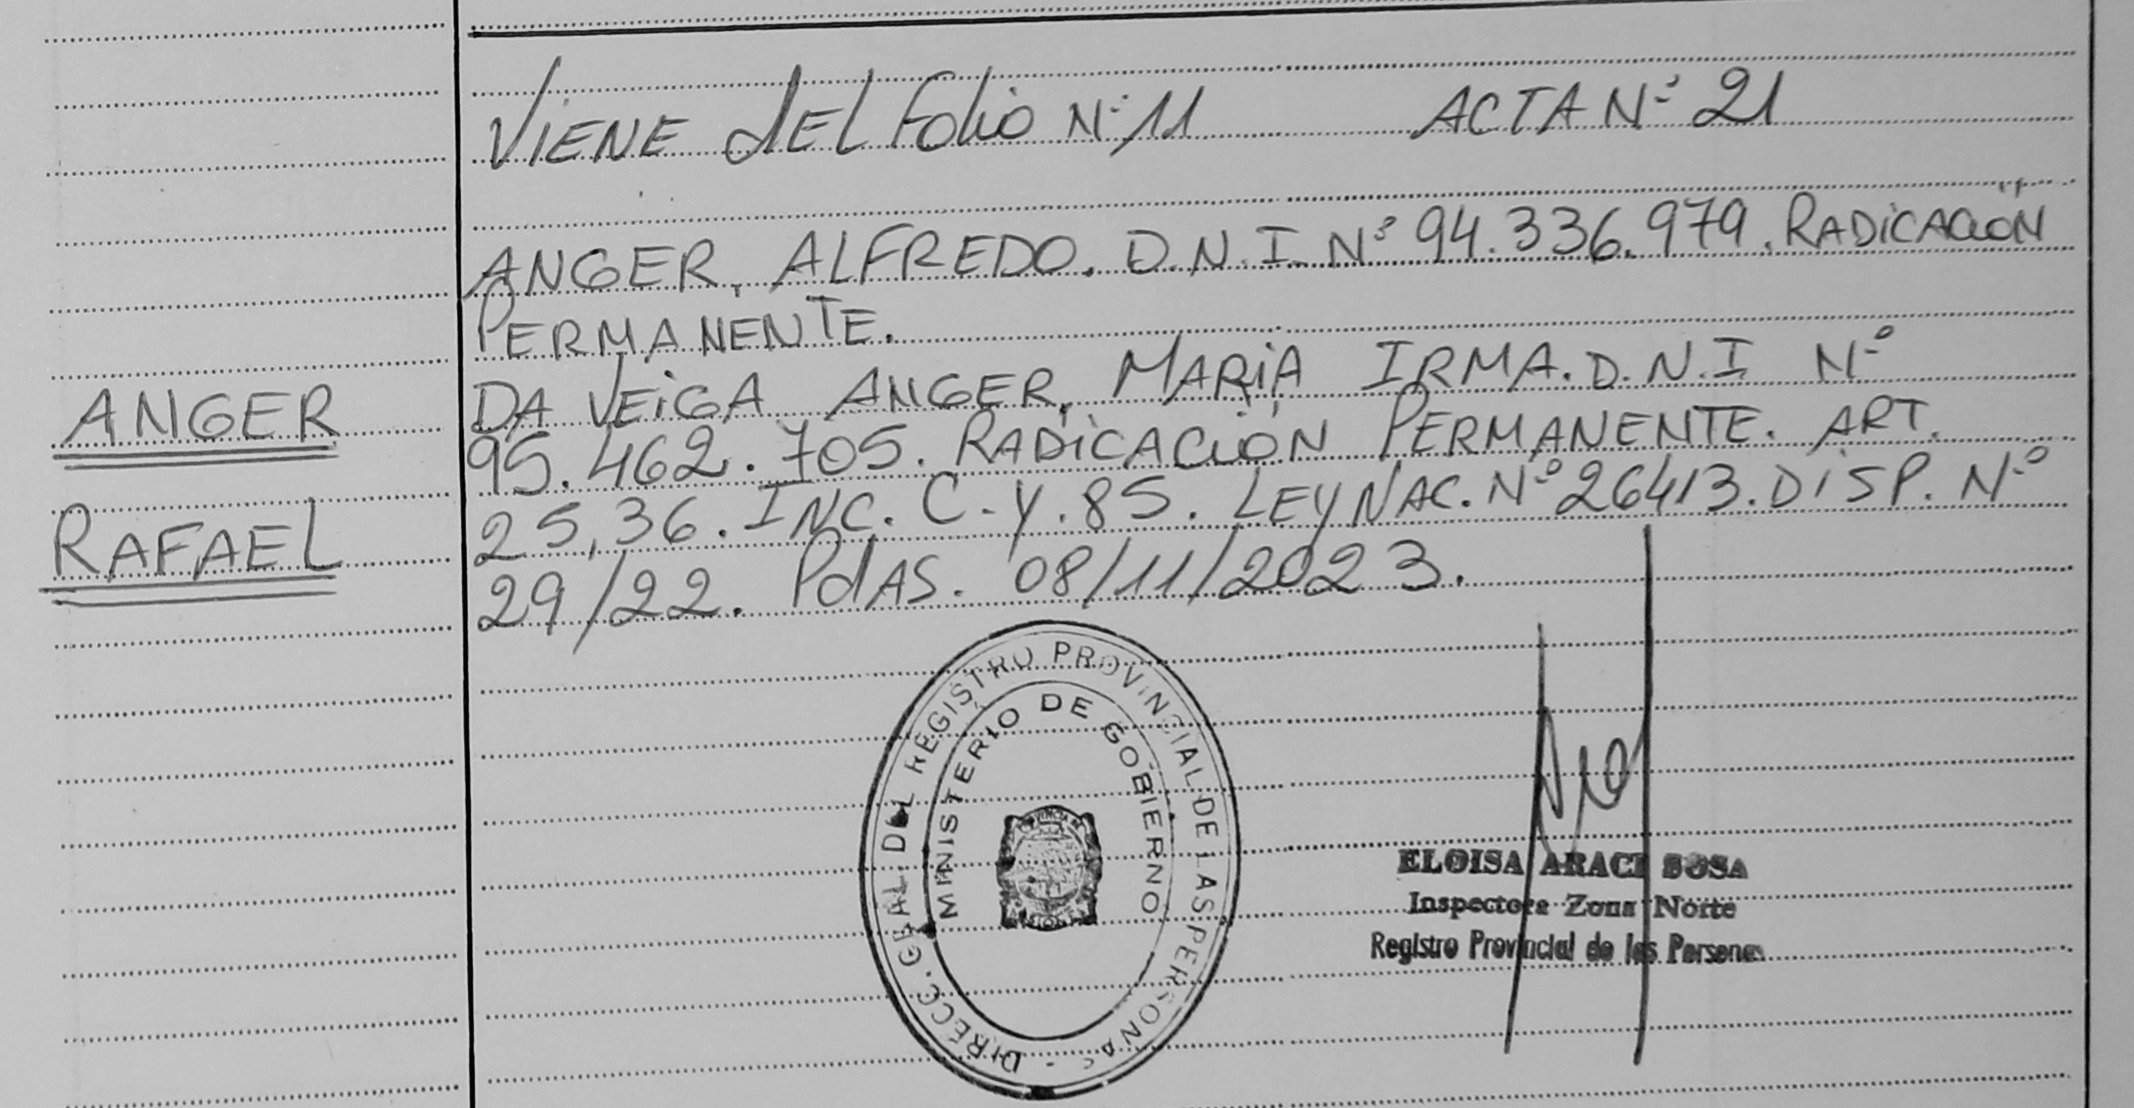 VIENE dEL Folio Nº 11 ACTA Nº 21
ANGER, ALFREDO. D.N.I. Nº 94.336.979. RADICACIÓN
PERMANENTE.
DA VEIGA ANGER, MARIA IRMA. D.N.I Nº
95.462.705. RADICACIÓN PERMANENTE. ART.
25,36. INC. C-Y.85. LEY NAC. Nº 26413. DISP. Nº
29/22. PdAS. 08/11/2023.
ANGER
RAFAEL
DIRECC. GRAL. DEL REGISTRO PROVINCIAL DE LAS PERSONAS -
MINISTERIO DE GOBIERNO
ELOISA ARACI SOSA
Inspectora Zona Norte
Registro Provincial de las Personas